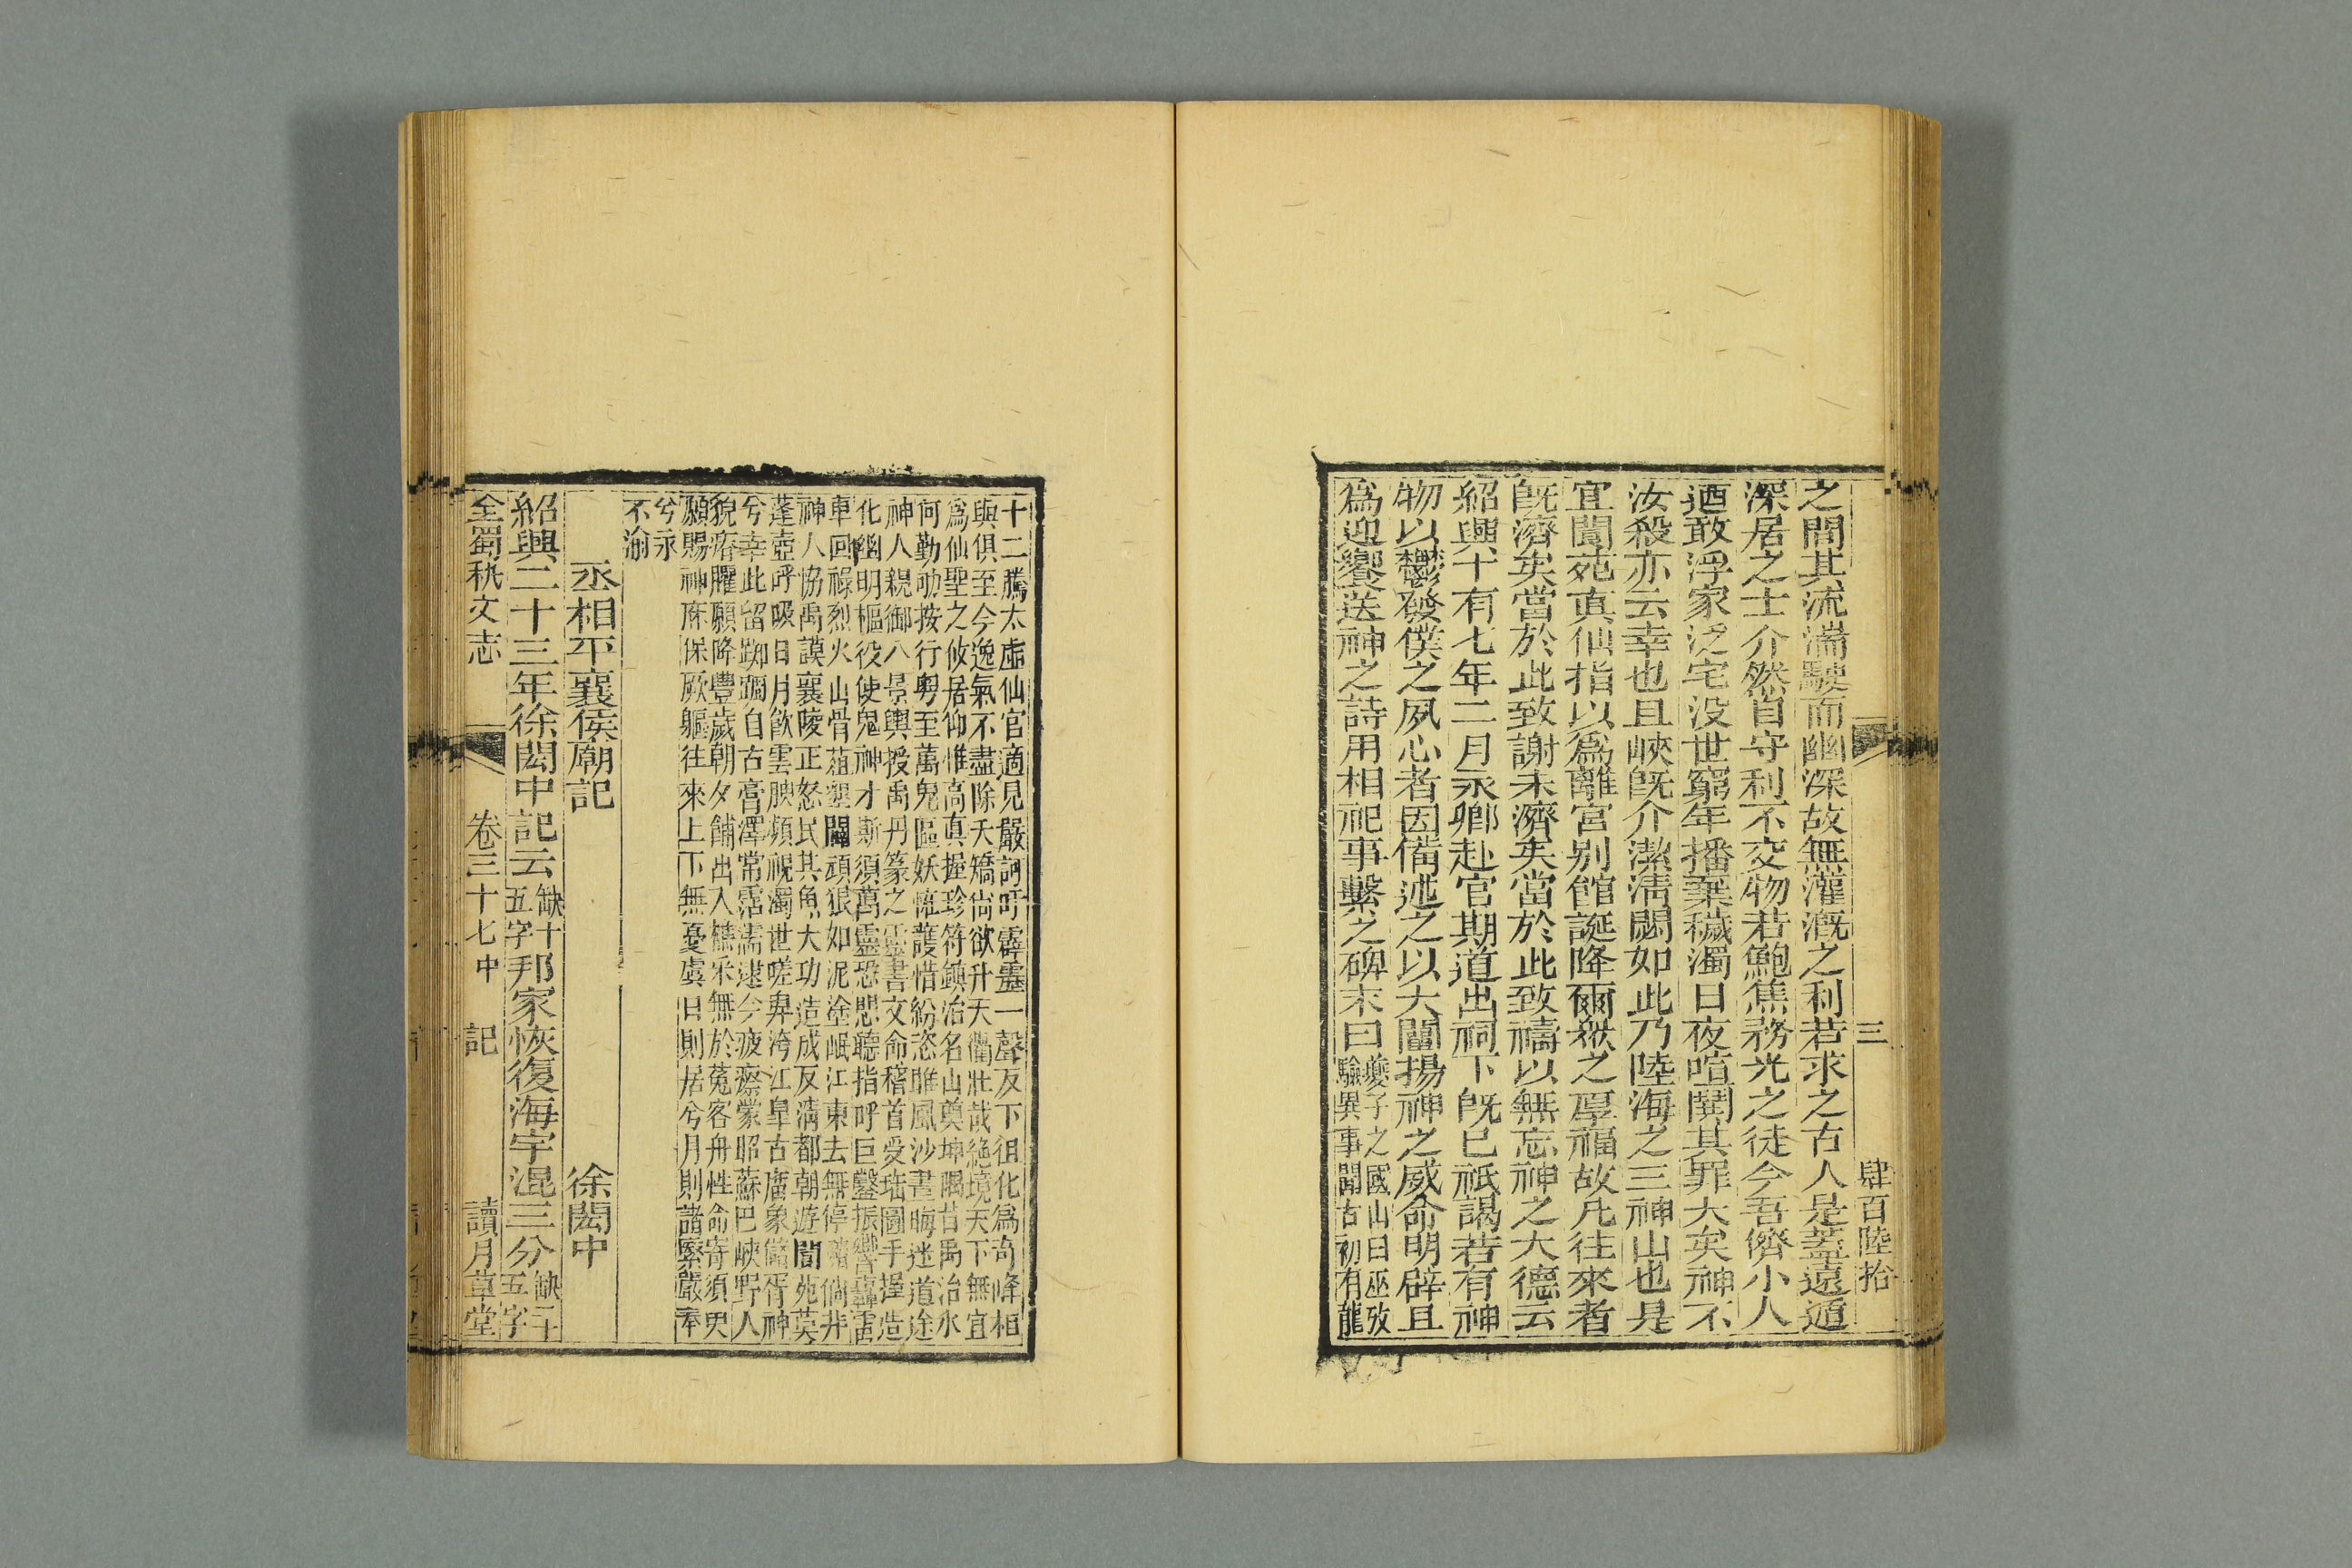 三 肆百陸拾
之間其流湍駛而幽深故無灌漑之利若求之古人是蓋遠遁
深居之士介然自守利不交物若鮑焦務光之徒今吾儕小人
廼敢浮家泛宅没世窮年播棄穢濁日夜喧鬨其罪大矣神不
汝殺亦云幸也且峽旣介潔淸閟如此乃陸海之三神山也是
宜閬苑眞仙指以爲離宮别館誕降爾衆之厚福故凡往來者
旣濟矣當於此致謝未濟矣當於此致禱以無忘神之大德云
紹興十有七年二月永卿赴官期道出祠下旣已祇謁若有神
物以鬱發僕之夙心者因備述之以大闡揚神之威命明辟且
爲迎饗送神之詩用相祀事繫之碑末曰
夔子之國山曰巫攷
驗異事聞古初有龍
十二騰太虛仙官適見嚴訶呼霹靂一聲反下徂化爲奇峰相
與俱至今逸氣不盡除夭矯尙欲升天衢壯哉絶境天下無宜
爲仙聖之攸居仰惟高眞握珍符鎮治名山奠坤隅昔禹治水
何勤劬按行粤至萬鬼區妖怪護惜紛恣睢風沙晝晦迷道途
神人親御八景輿授禹丹篆之靈書文命稽首受琺圖手握造
化幽明樞役使鬼神才斯須萬靈恐悲聽指呼巨鑿振響轟雷
車回祿烈火山骨葅壅闢頑狠如泥塗岷江東去無停瀦倘非
神人協禹謨襄陵正怒民其魚大功造成反淸都朝遊閬苑莫
蓬壺呼吸日月飮雲腴頻視濁世嗟卑洿江臯古廟象儲胥神
兮幸此留踟躕自古膏澤常霑濡逮今疲瘵蒙昭蘇巴峽野人
貌瘠臞願降豐歲朝夕餔出入樵采無於菟客舟性命寄須臾
願賜神庥保厥軀往來上下無憂虞日則居兮月則諸緊嚴奉
兮永
不渝
丞相平襄侯廟記 徐閎中
紹興二十三年徐閎中記云
缺十
五字
邦家恢復海宇混三分
缺二十
五字
全蜀秇文志 卷三十七中 記 讀月草堂